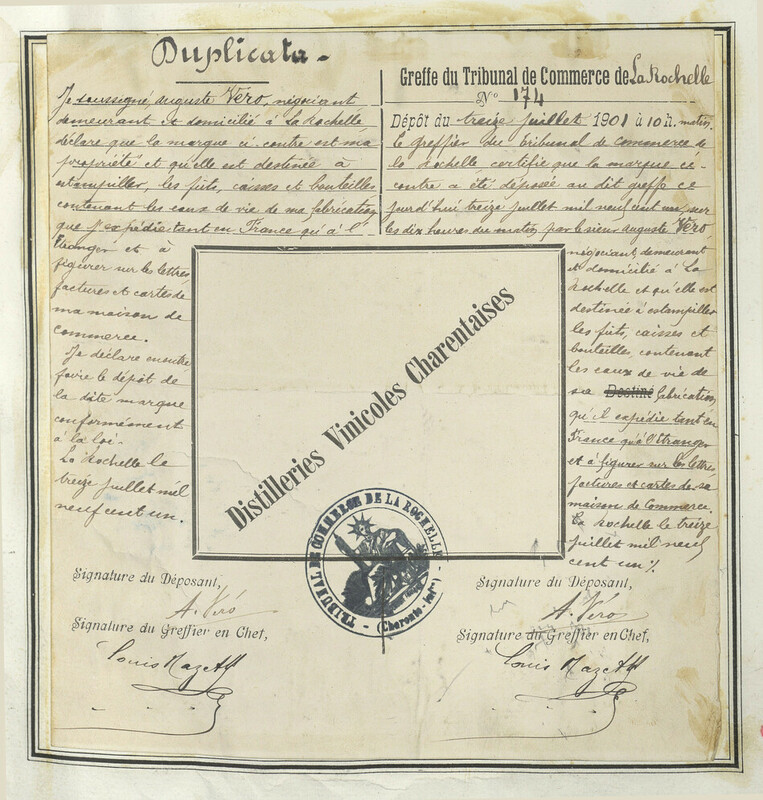 Duplicata -
Je soussigné, auguste Véro, négociant
demeurant et domicilié à La Rochelle,
déclare que la marque ci-contre est ma
propriété et qu'elle est destinée à
estampiller, les fûts, caisses et bouteilles
contenant les eaux de vie de ma fabrication
que j'expédie tant en France qu'à l'é-
tranger et à
figurer sur les lettres
factures et cartes de
ma maison de
commerce.
Je déclare en outre,
faire le dépôt de
la dite marque
conformément
à la loi.
La Rochelle le
treize juillet mil
neuf cent un.
Signature du Déposant,
A. Véro
Signature du Greffier en Chef,
Louis
Greffe du Tribunal de Commerce de La Rochelle
N° 174
Dépôt du treize juillet 1901 à 10 h. matin.
Le greffier du tribunal de commerce de
la Rochelle certifie que la marque ci-
contre a été déposée au dit greffe ce
jourd'hui treize juillet mil neuf cent un, sur
les dix heures du matin, par le sieur auguste Véro
négociant, demeurant
et domicilié à La
Rochelle et qu'elle est
destinée à estampiller
les fûts, caisses et
bouteille, contenant
les eaux de vie de
sa Destiné fabrication,
qu'il expédie tant en
France qu'à l'étranger
et à figurer sur les lettres
factures et cartes de sa
maison de Commerce.
La Rochelle le treize
juillet mil neuf
cent un %.
Signature du Déposant,
A. Véro
Signature du Greffier en Chef,
Louis
Distilleries Vinicoles Charentaises
TRIBUNAL DE COMMERCE DE LA ROCHELLE
(Charente-Infre)